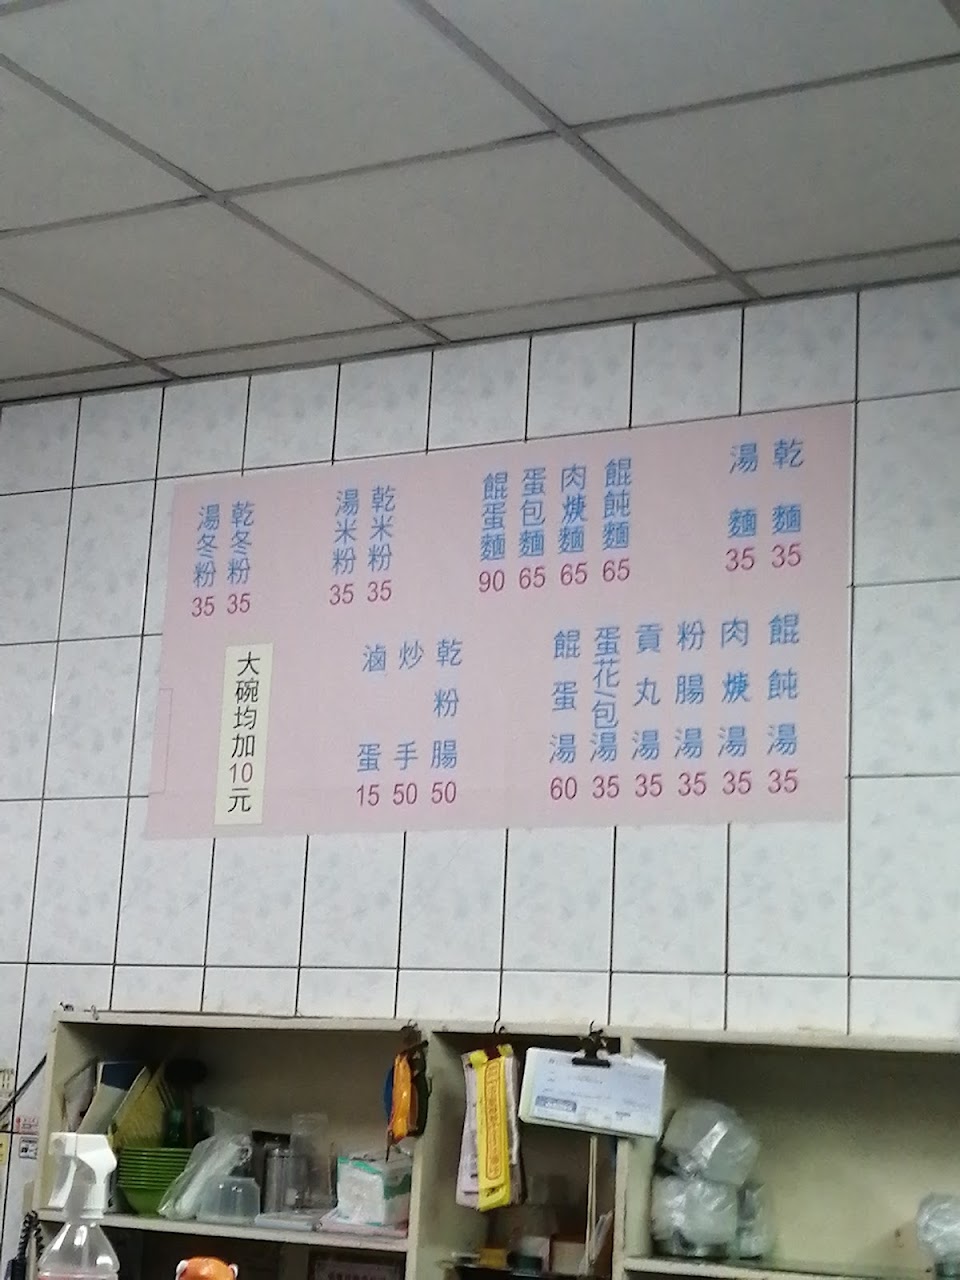 乾麵35
湯麵35
餛飩麵65
肉焿麵65
蛋包麵65
餛蛋麵90
乾米粉35
湯米粉35
乾冬粉35
湯冬粉35
餛飩湯35
肉焿湯35
粉腸湯35
貢丸湯35
蛋花/包湯35
餛蛋湯60
乾粉腸50
炒手50
滷蛋15
大碗均加10元